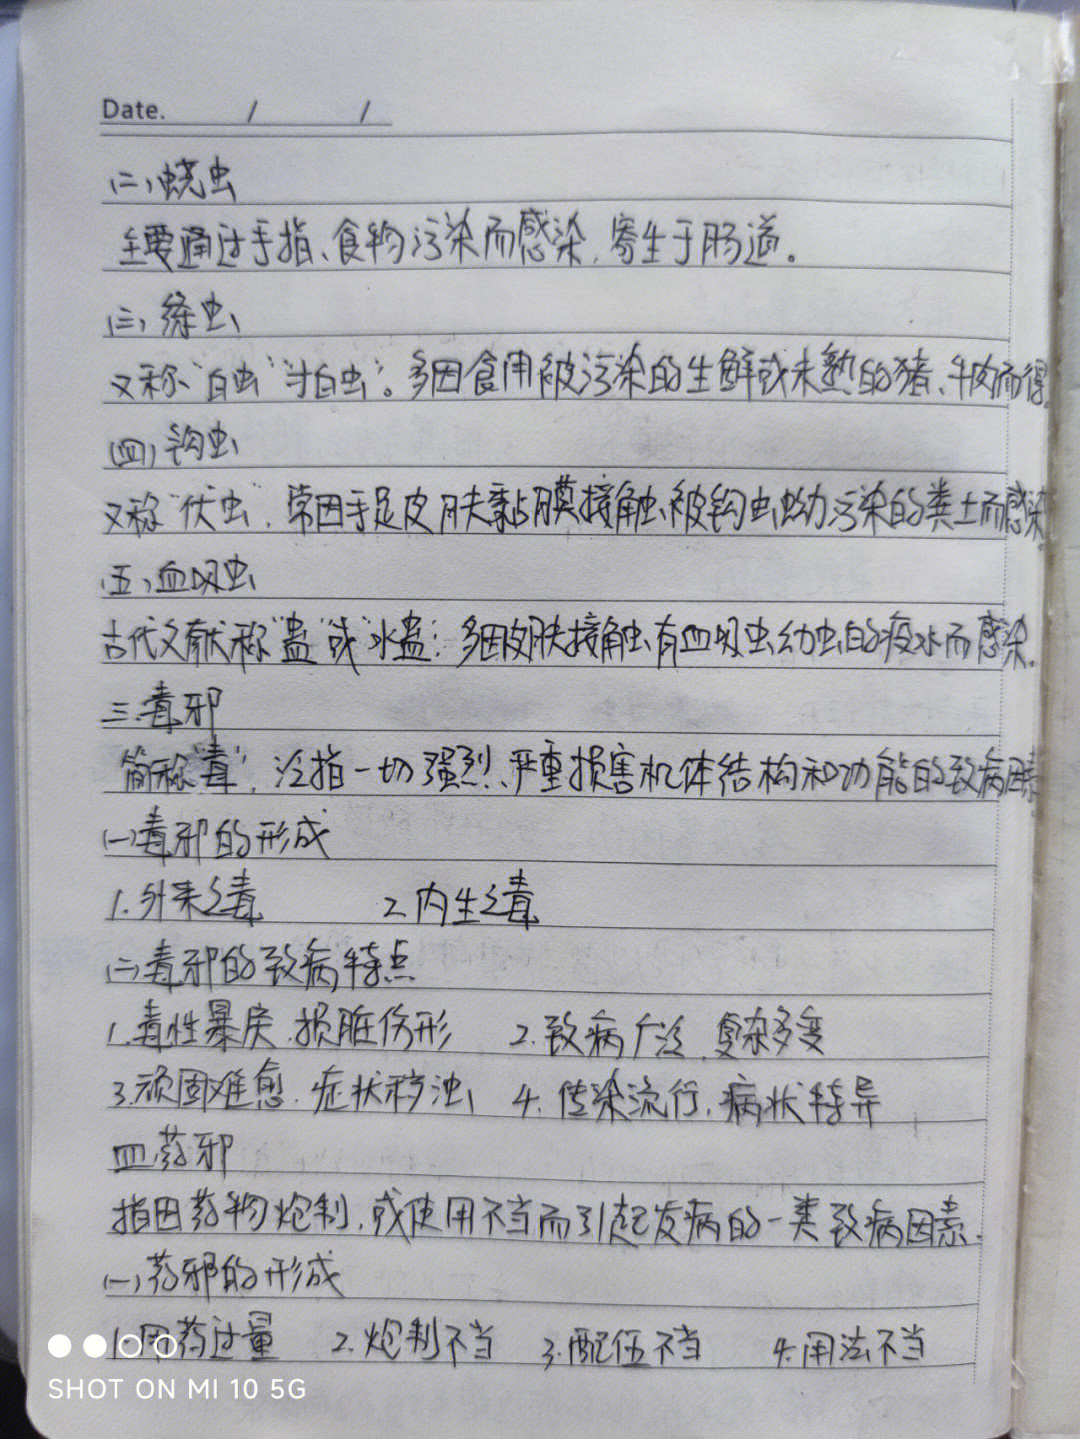 Date. / /
(二)蛲虫
主要通过手指、食物污染而感染,寄生于肠道。
(三)绦虫
又称“白虫”“寸白虫”。多因食用被污染的生鲜或未熟的猪、牛肉而得。
(四)钩虫
又称“伏虫”,常因手足皮肤黏膜接触被钩虫蚴污染的粪土而感染。
(五)血吸虫
古代文献称“蛊”或“水蛊”:多因皮肤接触有血吸虫幼虫的疫水而感染.
三.毒邪
简称“毒”,泛指一切强烈、严重损害机体结构和功能的致病因素
(一)毒邪的形成
1.外来之毒 2.内生之毒
(二)毒邪的致病特点
1.毒性暴戾.损脏伤形 2.致病广泛,复杂多变
3.顽固难愈.症状秽浊 4.传染流行,病状特异
四.药邪
指因药物炮制,或使用不当而引起发病的一类致病因素.
(一)药邪的形成
1.用药过量 2.炮制不当 3.配伍不当 4.用法不当
SHOT ON MI 10 5G